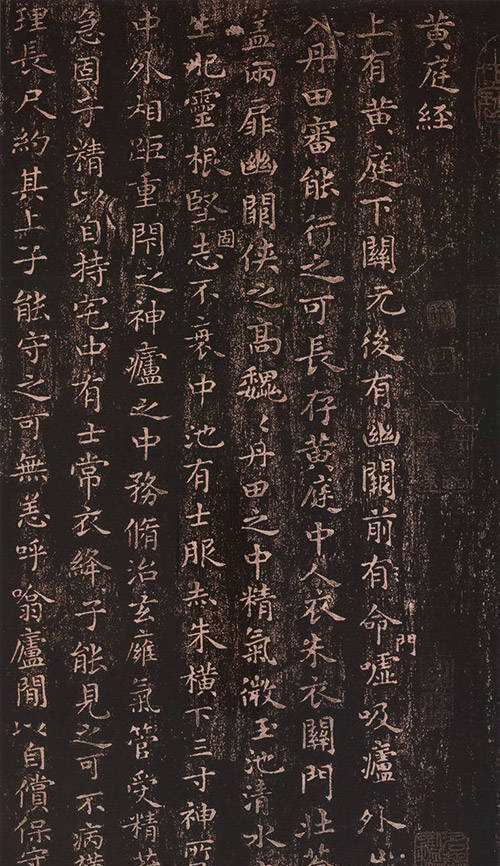 黄庭經
上有黄庭下關元後有幽闕前有命門嘘吸廬外
入丹田審能行之可長存黄庭中人衣朱衣關門壮
蓋兩扉幽闕俠之高魏〻丹田之中精氣微玉池清水
生肥靈根堅固志不衰中池有士服赤朱橫下三寸神所
中外相距重閇之神廬之中務脩治玄癰氣管受精
急固子精以自持宅中有士常衣絳子能見之可不病
理長尺約其上子能守之可無恙呼噏廬間以自償保守